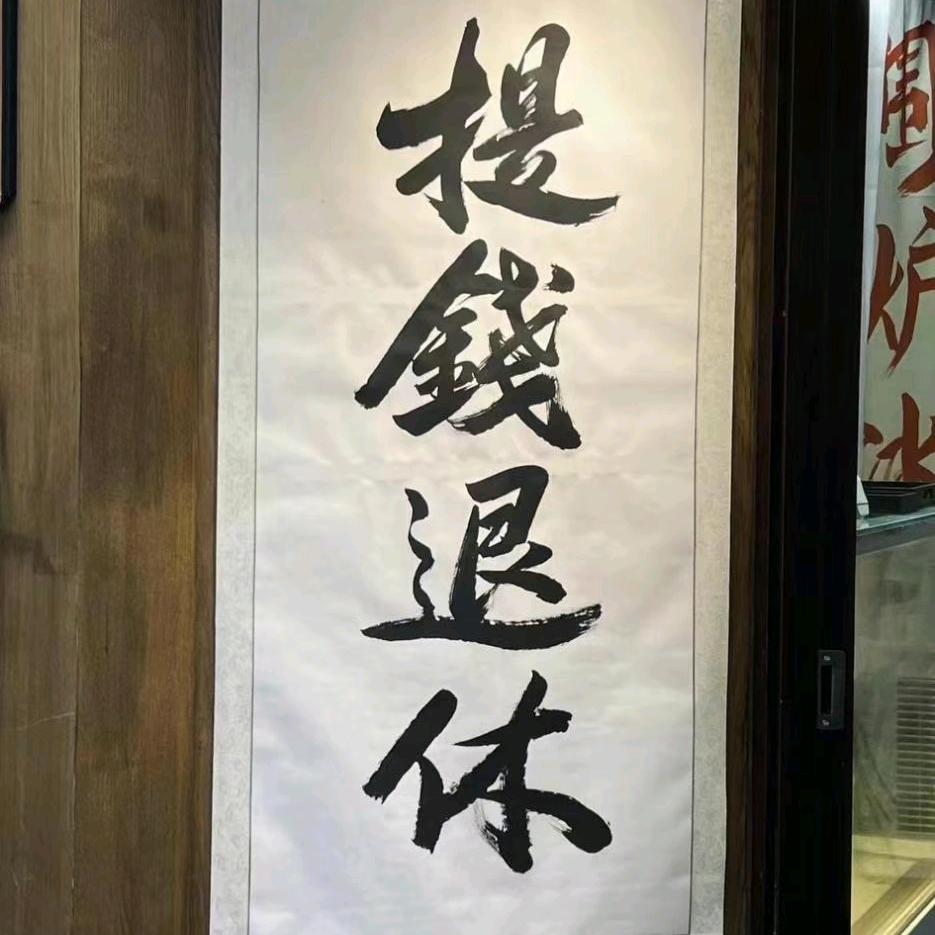 提錢退休
围炉冰